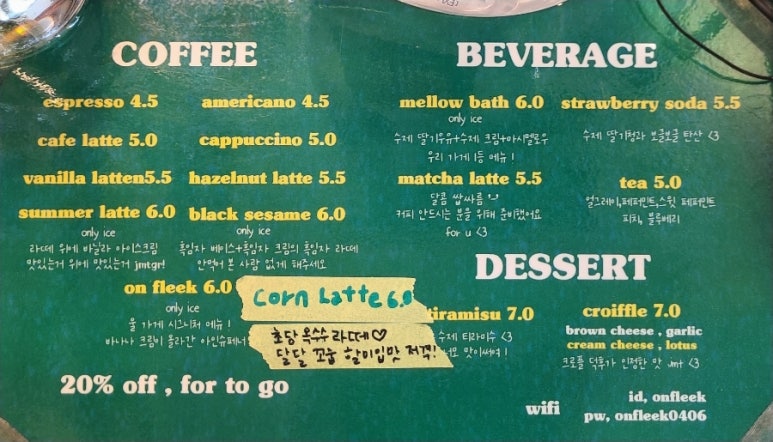 COFFEE
espresso 4.5
americano 4.5
cafe latte 5.0
cappuccino 5.0
vanilla latten5.5
hazelnut latte 5.5
summer latte 6.0
only ice
라떼 위에 바닐라 아이스크림
맛있는거 위에 맛있는거 jmtgr!
black sesame 6.0
only ice
흑임자 베이스+흑임자 크림의 흑임자 라떼
안먹어 본 사람 없게 해주세요
on fleek 6.0
only ice
울 가게 시그니처 메뉴!
바나나 크림이 올라간 아인슈페너
Corn Latte 6.0
초당옥수수 라떼♡
달달 꼬숩 할미입맛 저격!
20% off , for to go
BEVERAGE
mellow bath 6.0
only ice
수제 딸기우유+수제 크림+마시멜로우
우리 가게 1등 메뉴!
strawberry soda 5.5
수제 딸기청과 보글보글 탄산 <3
matcha latte 5.5
달콤 쌉싸름
커피 안드시는 분을 위해 준비했어요
for u <3
tea 5.0
얼그레이,페퍼민트,스윗 페퍼민트
피치, 블루베리
DESSERT
tiramisu 7.0
수제 티라미수 <3
맛이쎄여!
croiffle 7.0
brown cheese , garlic
cream cheese , lotus
크로플 덕후가 인정한 맛 jmt <3
wifi
id, onfleek
pw, onfleek0406